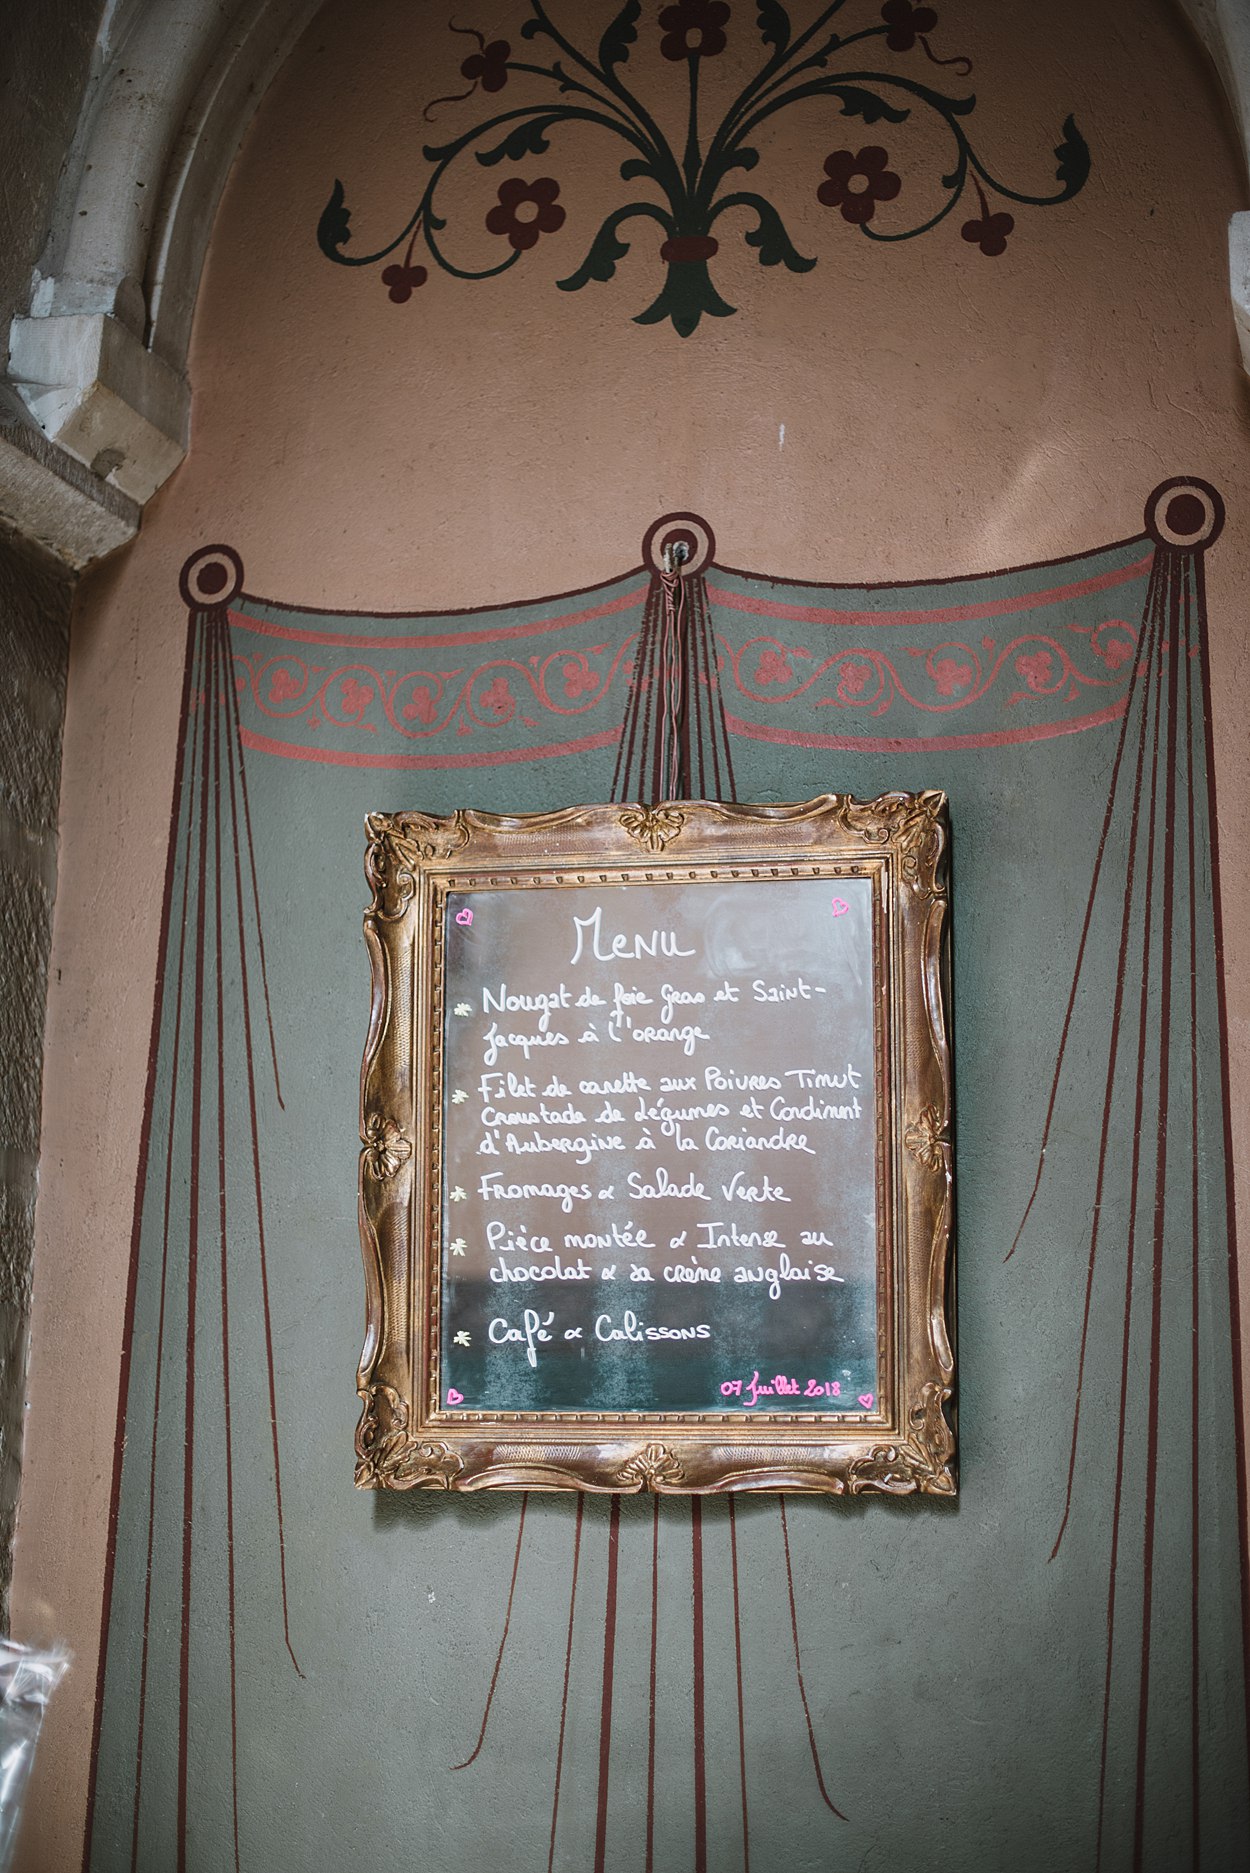 Menu
Nougat de foie Gras et Saint-
Jacques à l'orange
Filet de canette aux Poivres Timut
Croustade de Légumes et Condiment
d'Aubergine à la Coriandre
Fromages & Salade Verte
Pièce montée & Intense au
chocolat & sa crème anglaise
Café & Calissons
07 Juillet 2018